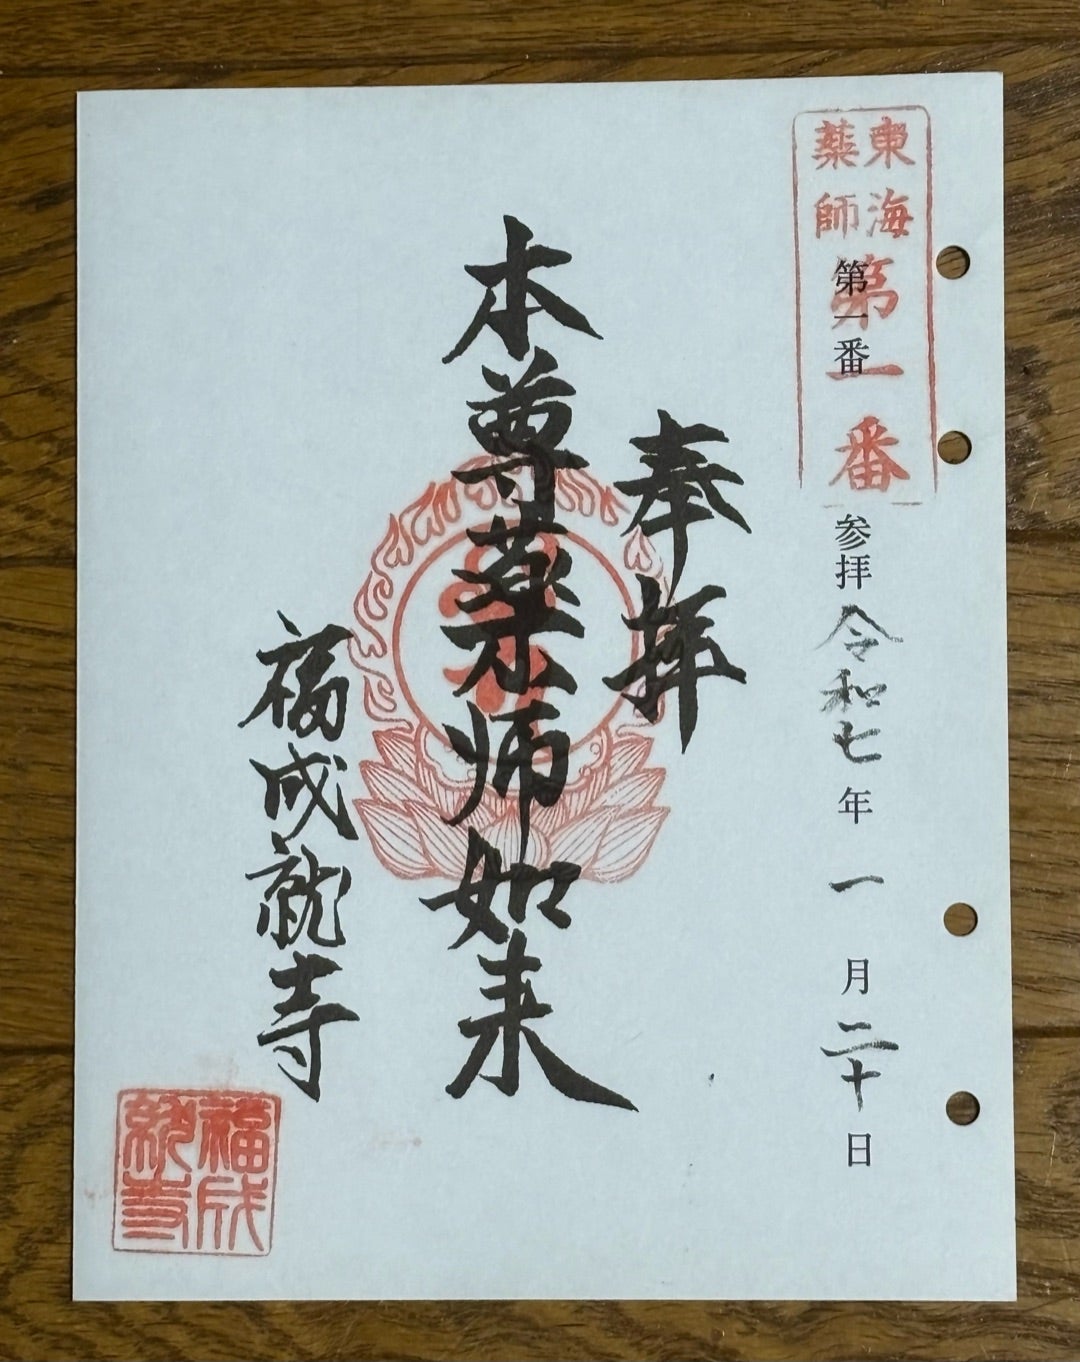 東海
薬師
第一番
第一番 参拝 令和七年 一月二十日
奉拝
本尊薬師如来
福成就寺
福成
就寺